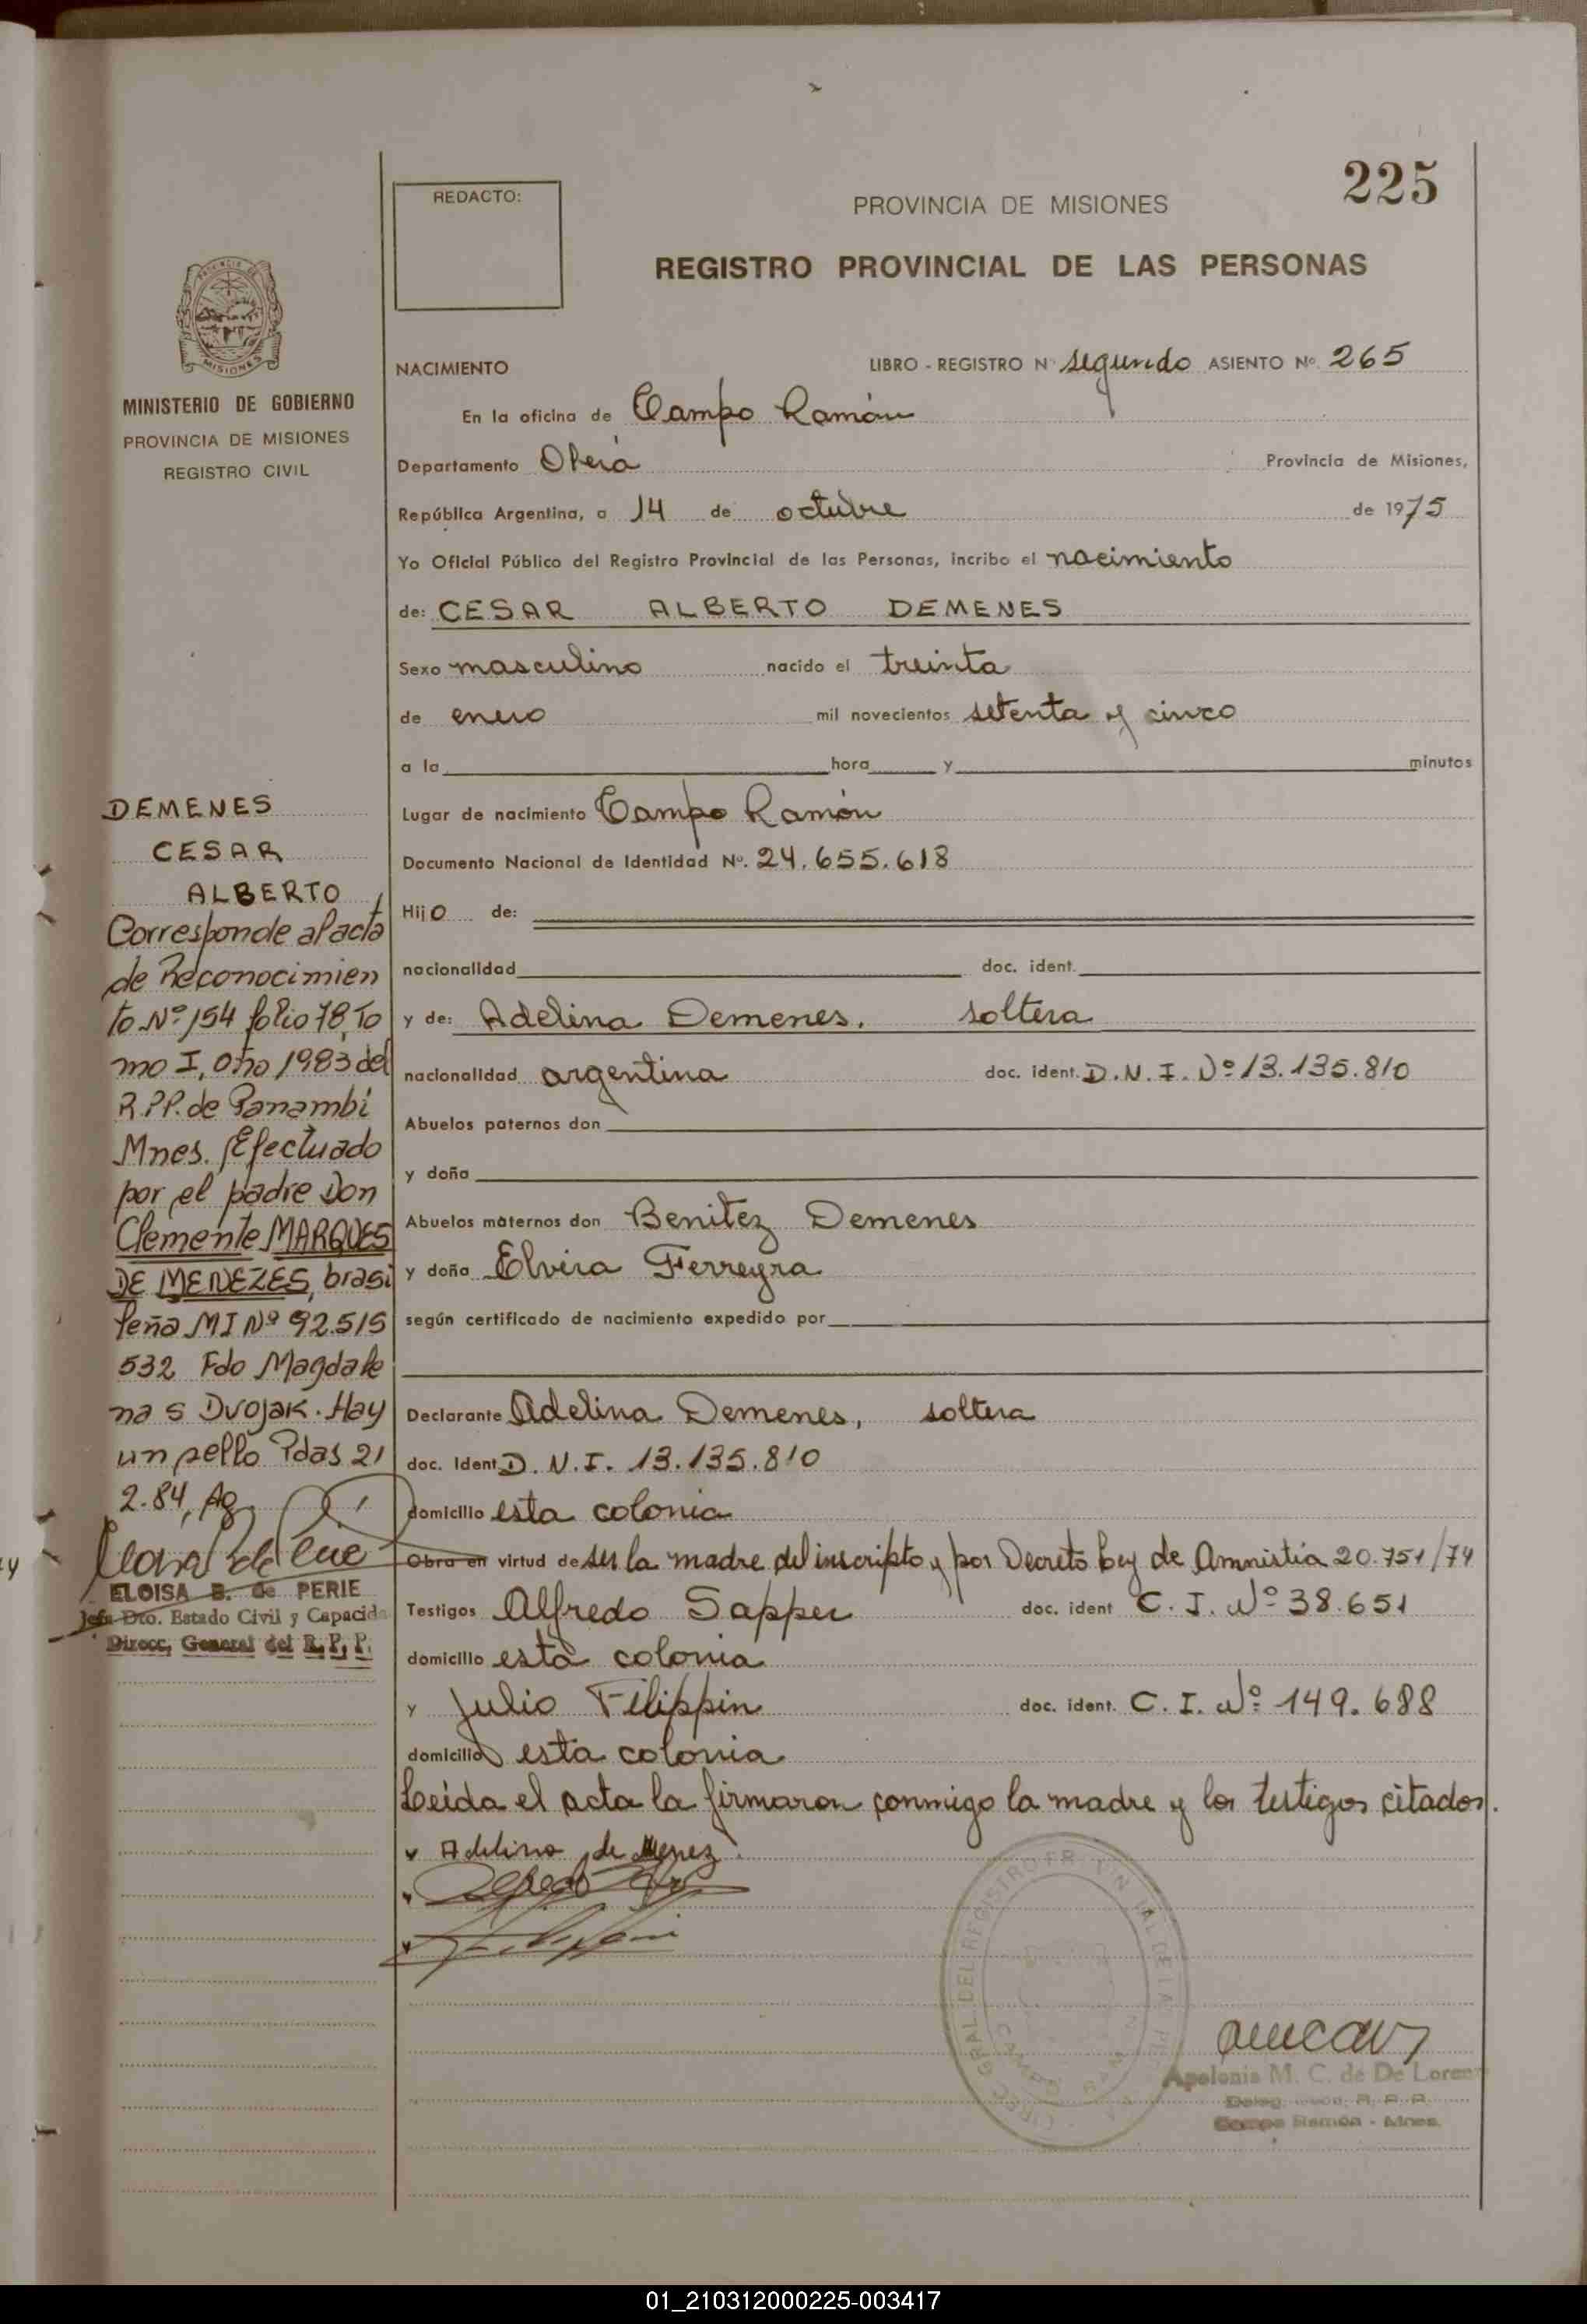 225
REDACTO:
PROVINCIA DE MISIONES
REGISTRO PROVINCIAL DE LAS PERSONAS
MISIONES
MINISTERIO DE GOBIERNO
PROVINCIA DE MISIONES
REGISTRO CIVIL
NACIMIENTO LIBRO - REGISTRO Nº segundo ASIENTO Nº 265
En la oficina de Campo Ramón
Departamento Oberá Provincia de Misiones,
República Argentina, a 14 de octubre de 1975
Yo Oficial Público del Registro Provincial de las Personas, incribo el nacimiento
de: CESAR ALBERTO DEMENES
Sexo masculino nacido el treinta
de enero mil novecientos setenta y cinco
a la hora y minutos
Lugar de nacimiento Campo Ramón
Documento Nacional de Identidad Nº. 24.655.618
Hijo de:
nacionalidad doc. ident.
y de: Adelina Demenes, soltera
nacionalidad argentina doc. ident. D.N.I. Nº 13.135.810
Abuelos paternos don
y doña
Abuelos maternos don Benitez Demenes
y doña Elvira Ferreyra
según certificado de nacimiento expedido por
Declarante Adelina Demenes, soltera
doc. Ident D.N.I. 13.135.810
domicilio esta colonia
Obra en virtud de ser la madre del inscripto y por Decreto Ley de Amnistía 20.751/74
Testigos Alfredo Sapper doc. ident C.I. Nº 38.651
domicilio esta colonia
y Julio Filippin doc. ident. C.I. Nº 149.688
domicilio esta colonia
Leída el acta la firmaron conmigo la madre y los testigos citados.
Adelina de Menez
DEMENES
CESAR
ALBERTO
Corresponde al acta
de Reconocimien
to Nº 154 folio 78, To
mo I, año 1983 del
R.P.P. de Panambi
Mnes. Efectuado
por el padre Don
Clemente MARQUES
DE MENEZES, brasi
leña MI Nº 92.515
532 Fdo Magdale
na S Dvojak. Hay
un sello Pdas 21
2.84, Ag
ELOISA B. de PERIE
Jefa Dto. Estado Civil y Capacid
Direcc. General del R. P. P.
Apolonia M. C. de De Lorenzo
Campo Ramón - Mnes.
01_210312000225-003417